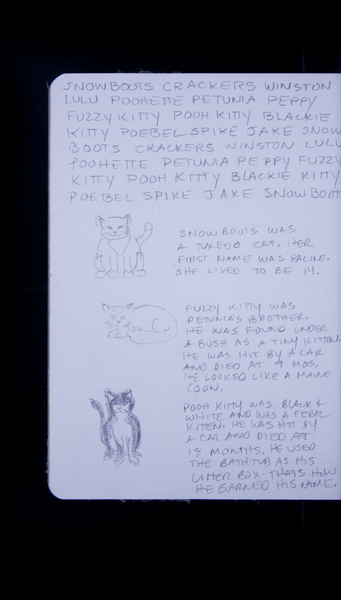 SNOWBOOTS CRACKERS WINSTON
LULU POOHETTE PETUNIA PEPPY
FUZZY KITTY POOH KITTY BLACKIE
KITTY POEBEL SPIKE JAKE SNOW
BOOTS CRACKERS WINSTON LULU
POOHETTE PETUNIA PEPPY FUZZY
KITTY POOH KITTY BLACKIE KITTY
POEBEL SPIKE JAKE SNOWBOOT
SNOWBOOTS WAS
A TUXEDO CAT. HER
FIRST NAME WAS RACINE.
SHE LIVED TO BE 14.
FUZZY KITTY WAS
PETUNIA'S BROTHER.
HE WAS FOUND UNDER
A BUSH AS A TINY KITTEN.
HE WAS HIT BY A CAR
AND DIED AT 9 MOS.
HE LOOKED LIKE A MAINE
COON.
POOH KITTY WAS BLACK &
WHITE AND WAS A FERAL
KITTEN. HE WAS HIT BY
A CAR AND DIED AT
18 MONTHS. HE USED
THE BATHTUB AS HIS
LITTER BOX - THATS HOW
HE EARNED HIS NAME.